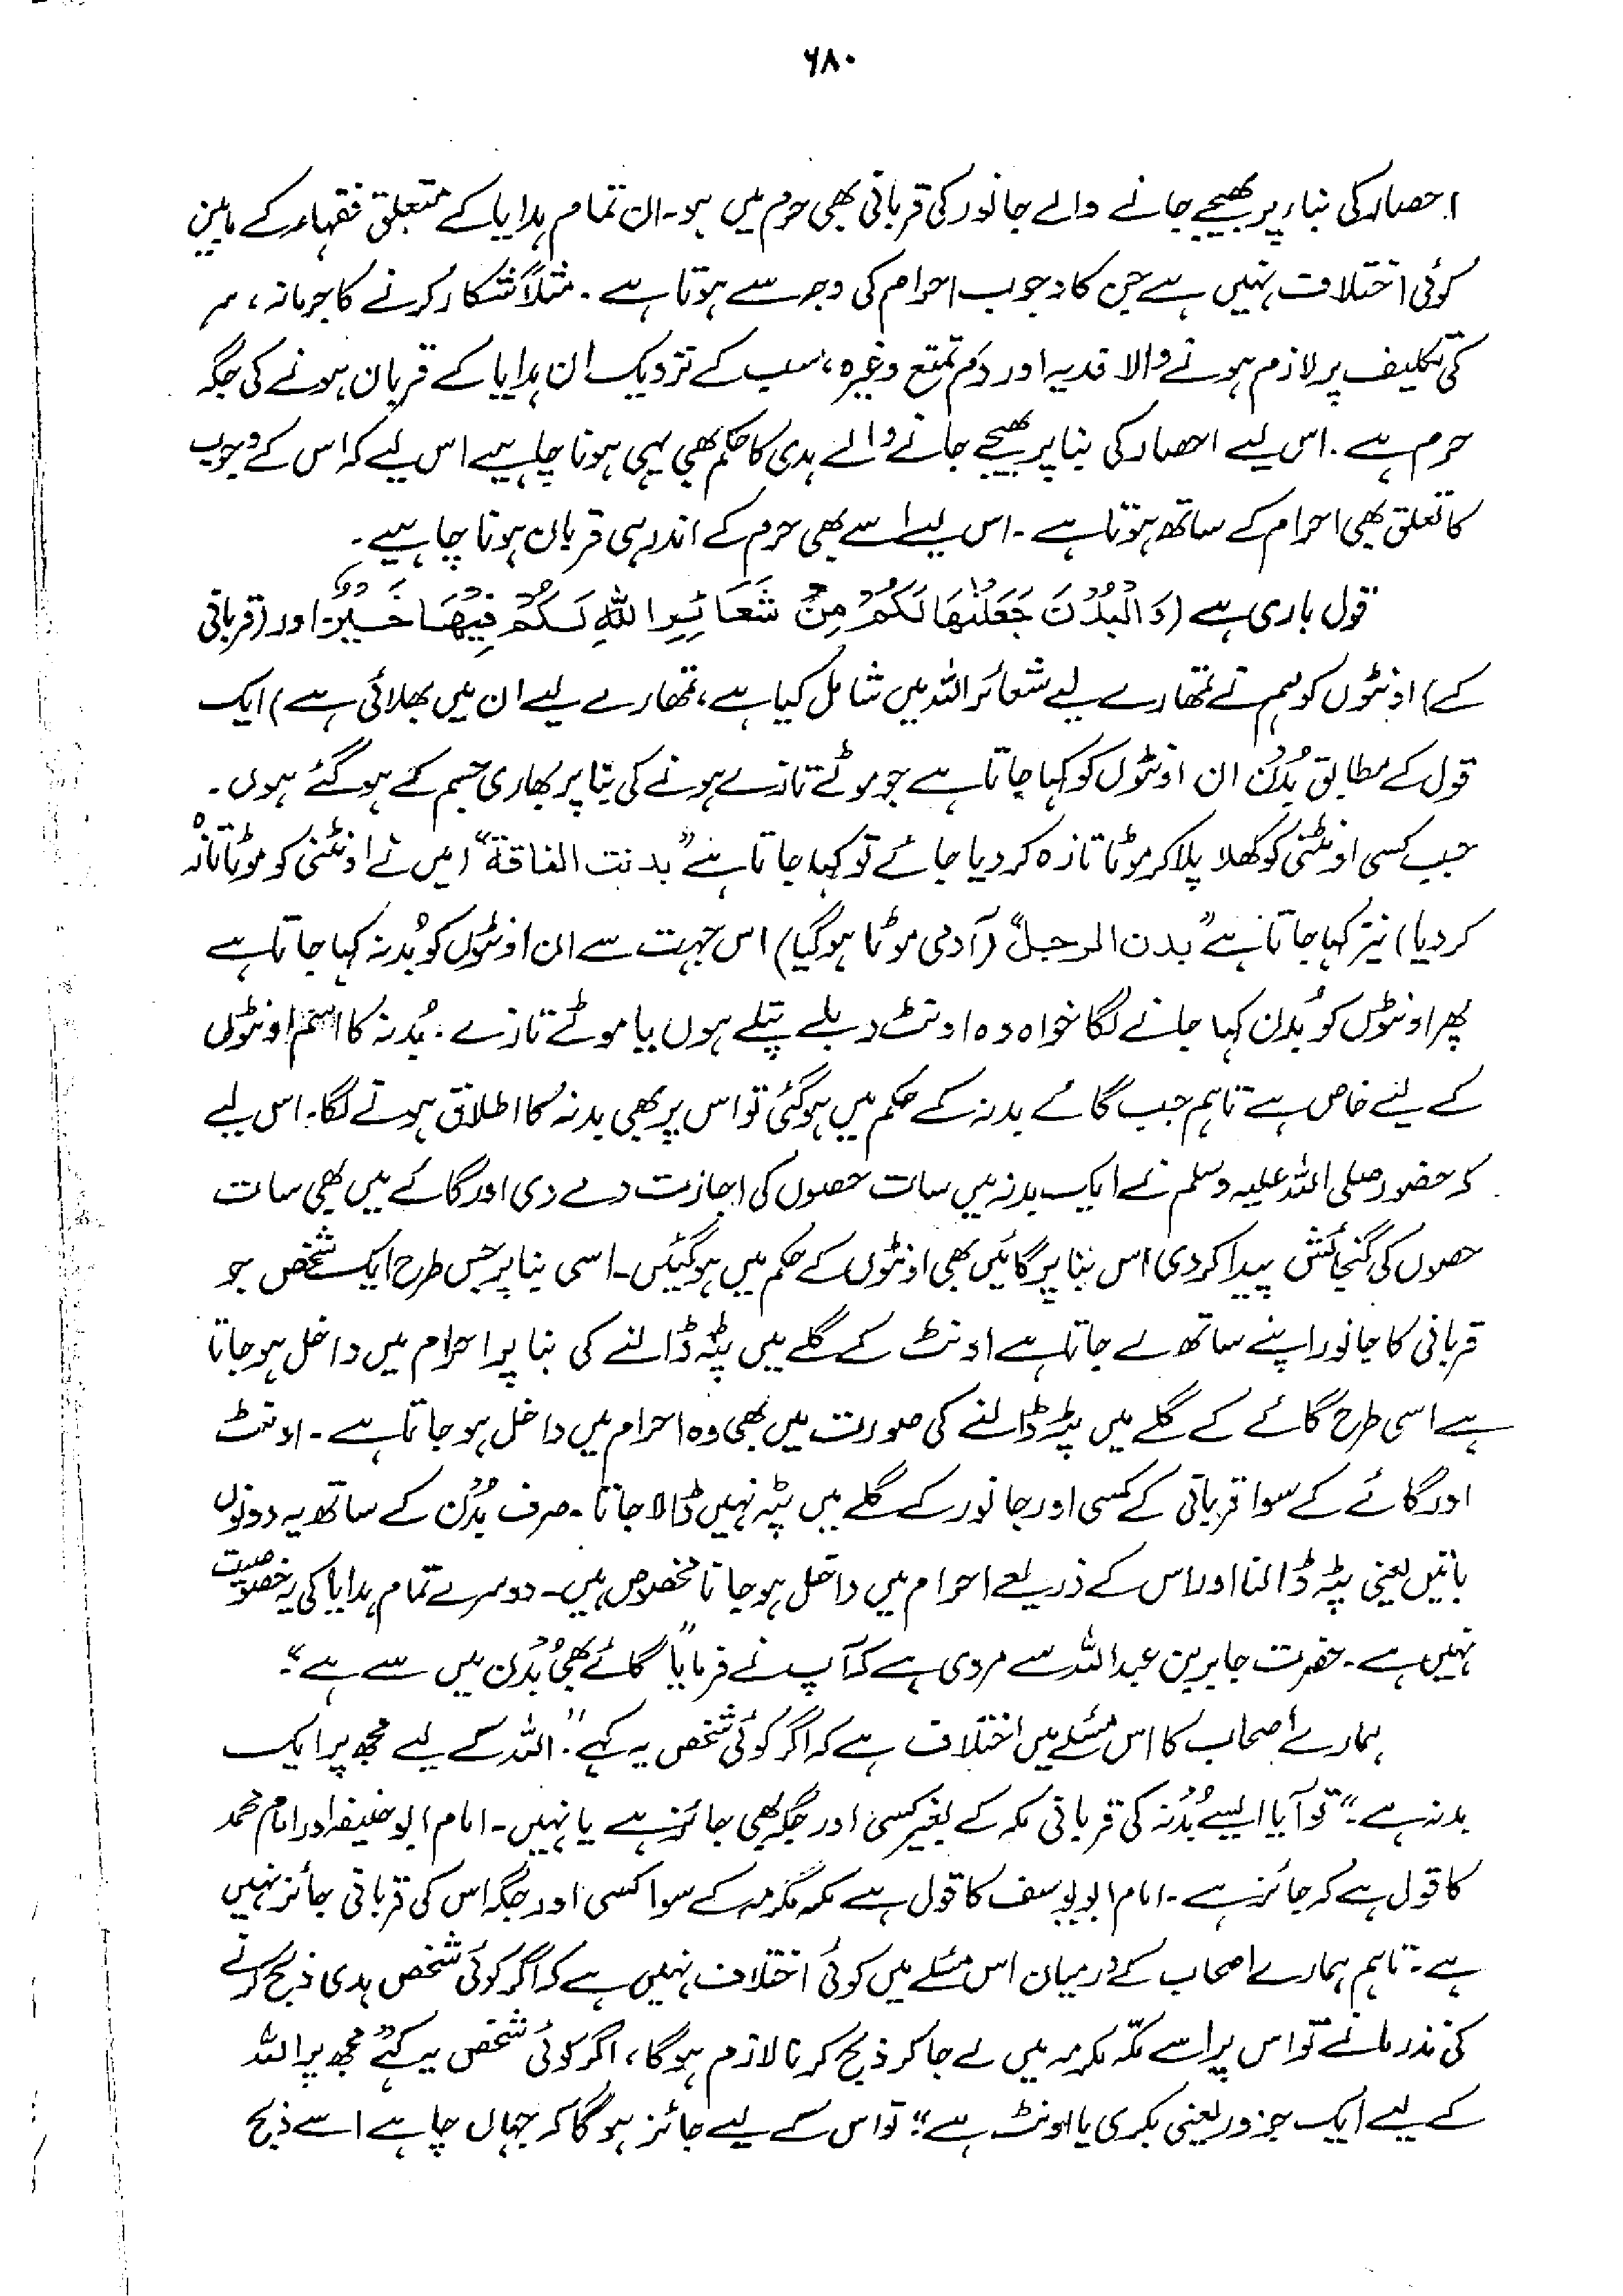 ۶۸۰
احصار کی بناء پر بھیجے جانے والے جانور کی قربانی بھی حرم میں ہو۔ ان تمام ہدایا کے متعلق فقہاء کے مابین
کوئی اختلاف نہیں ہے جن کا وجوب احرام کی وجہ سے ہوتا ہے۔ مثلاً شکار کرنے کا جرمانہ، سر
کی تکلیف پر لازم ہونے والا فدیہ اور دم تمتع وغیرہ، سب کے نزدیک ان ہدایا کے قربان ہونے کی جگہ
حرم ہے۔ اس لیے احصار کی بنا پر بھیجے جانے والے ہدی کا حکم بھی یہی ہونا چاہیے اس لیے کہ اس کے وجوب
کا تعلق بھی احرام کے ساتھ ہوتا ہے۔ اس لیے اسے بھی حرم کے اندر ہی قربان ہونا چاہیے۔
قول باری ہے (وَالْبُدْنَ جَعَلْنٰهَا لَكُمْ مِنْ شَعَائِرِ اللّٰهِ لَكُمْ فِيْهَا خَيْرٌ اور (قربانی
کے) اونٹوں کو ہم نے تمھارے لیے شعائر اللہ میں شامل کیا ہے، تمھارے لیے ان میں بھلائی ہے) ایک
قول کے مطابق بُدْن ان اونٹوں کو کہا جاتا ہے جو موٹے تازے ہونے کی بنا پر بھاری جسم کے ہو گئے ہوں۔
جب کسی اونٹنی کو کھلا پلا کر موٹا تازہ کر دیا جائے تو کہا جاتا ہے "بدنت الناقة" (میں نے اونٹنی کو موٹا تازہ
کر دیا) نیز کہا جاتا ہے "بدن الرجل" (آدمی موٹا ہو گیا) اس جہت سے ان اونٹوں کو بُدنہ کہا جاتا ہے
پھر اونٹوں کو بُدن کہا جانے لگا خواہ وہ اونٹ دبلے پتلے ہوں یا موٹے تازے۔ بُدنہ کا اسم اونٹوں
کے لیے خاص ہے تاہم جب گائے بدنہ کے حکم میں ہو گئی تو اس پر بھی بدنہ کا اطلاق ہونے لگا۔ اس لیے
کہ حضور صلی اللہ علیہ وسلم نے ایک بدنہ میں سات حصوں کی اجازت دے دی اور گائے میں بھی سات
حصوں کی گنجائش پیدا کر دی اس بنا پر گائیں بھی اونٹوں کے حکم میں ہو گئیں۔ اسی بنا پر جس طرح ایک شخص جو
قربانی کا جانور اپنے ساتھ لے جاتا ہے اونٹ کے گلے میں پٹہ ڈالنے کی بنا پر احرام میں داخل ہو جاتا
ہے اسی طرح گائے کے گلے میں پٹہ ڈالنے کی صورت میں بھی وہ احرام میں داخل ہو جاتا ہے۔ اونٹ
اور گائے کے سوا قربانی کے کسی اور جانور کے گلے میں پٹہ نہیں ڈالا جاتا۔ صرف بُدْن کے ساتھ یہ دونوں
باتیں یعنی پٹہ ڈالنا اور اس کے ذریعے احرام میں داخل ہو جانا مخصوص ہیں۔ دوسرے تمام ہدایا کی یہ خصوصیت
نہیں ہے۔ حضرت جابر بن عبداللہ سے مروی ہے کہ آپ نے فرمایا "گائے بھی بُدْن میں سے ہے"۔
ہمارے اصحاب کا اس مسئلے میں اختلاف ہے کہ اگر کوئی شخص یہ کہے۔ "اللہ کے لیے مجھ پر ایک
بدنہ ہے۔" تو آیا ایسے بُدنہ کی قربانی مکہ کے بغیر کسی اور جگہ بھی جائز ہے یا نہیں۔ امام ابوحنیفہ اور امام محمد
کا قول ہے کہ جائز ہے۔ امام ابو یوسف کا قول ہے مکہ مکرمہ کے سوا کسی اور جگہ اس کی قربانی جائز نہیں
ہے۔ تاہم ہمارے اصحاب کے درمیان اس مسئلے میں کوئی اختلاف نہیں ہے کہ اگر کوئی شخص ہدی ذبح کرنے
کی نذر مانے تو اس پر اسے مکہ مکرمہ میں لے جا کر ذبح کرنا لازم ہو گا، اگر کوئی شخص یہ کہے "مجھ پر اللہ
کے لیے ایک جزور یعنی بکری یا اونٹ ہے"۔ تو اس کے لیے جائز ہو گا کہ جہاں چاہے اسے ذبح